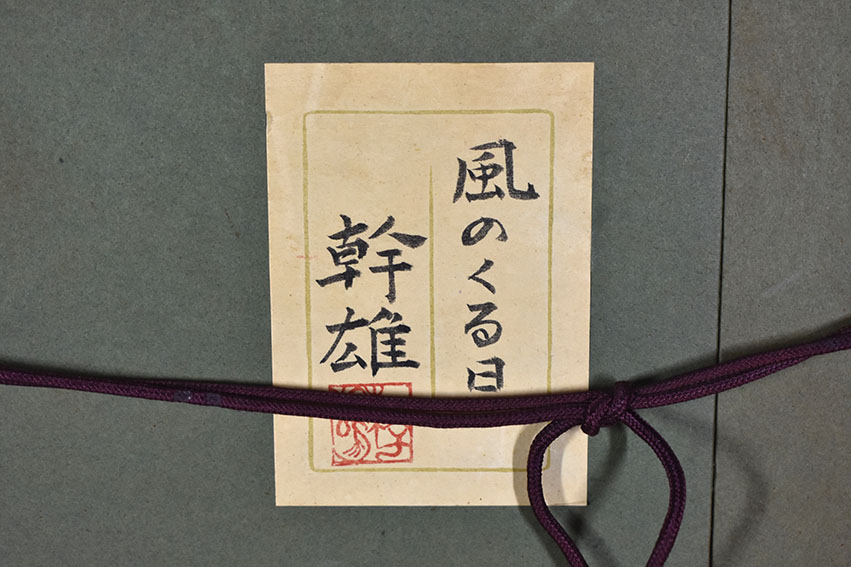 風のくる日
幹雄